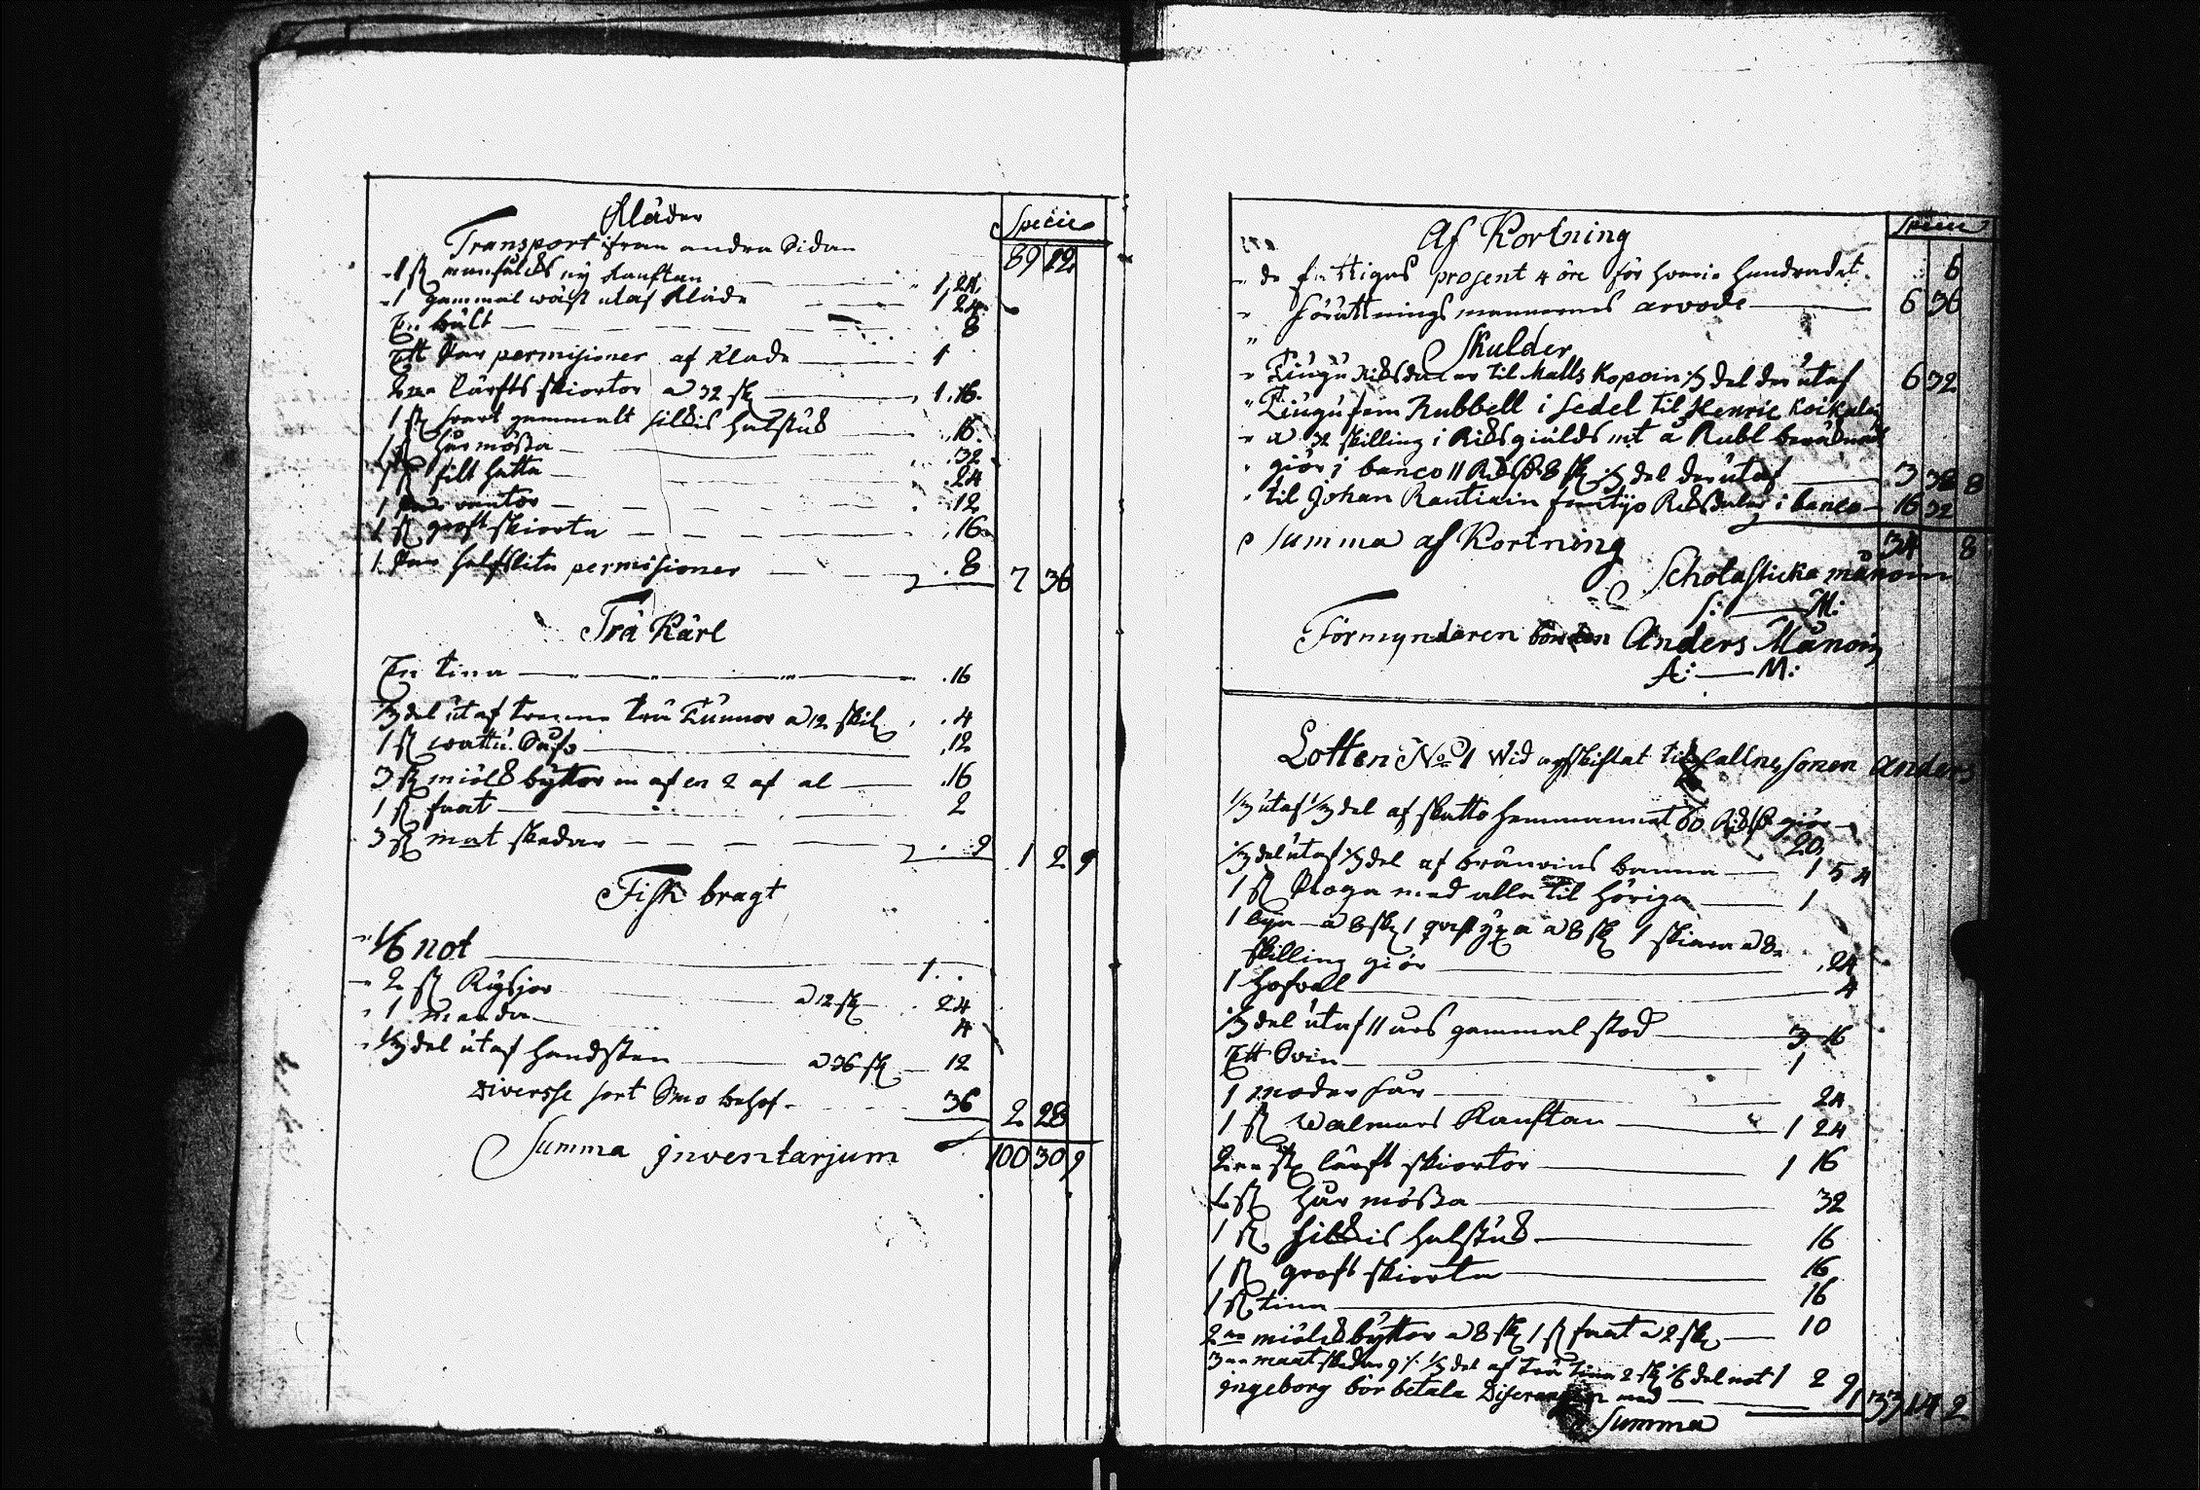 Kläder
Specie
Transport ifrån andra Sidan 89 12
1 st manfolcks ny Kauftan 1,24
1 gammal wäst utaf Kläde 1 24
En bält 8
Ett Par permisioner af Klade 1
2ne lärfts skiortor a 32 sk 1.16
1 st svart gammalt silkis halstuk .16
1 st hår mössa .32
1 st filt hatta .24
1 Par vantar .12
1 st groft skiorta .16
1 Par halfslitn permisioner .8 7 36
Trä Kärl
En tina .16
1/3 del utaf trenne trä Tunnor a 12 skil .4
1 st wattu Så .12
3 st miölk byttor en af en 2 af al .16
1 st faat 2
3 st mat skedar .9 1 2 9
Fisk bragt
1/6 not 1..
2 st Rysjor a 12 sk 24
1 4
1/3 del utaf handsten a 36 sk 12
Diversse sort Smo behof 36 2 28
Summa inventarjum 100 30 9
Af Kortning
Specie
de fattigas prosent 4 öre för hvarie hundradet 6
förättningsmannernes arvode 6 36
Skulder
Tiugu Riksdaler til Matts Kopoin 1/3 del der utaf 6 32
Tiugufem Rubbell i sedel til Henric
a 32 skilling i Riksgiälds mt å Rubl beräknat
giör i banco 11 Rd 8 sk 1/3 del der utaf 3 8
til Johan Rautiain femtijo Riksdaler i banco 16 32
Summa af Kortning 34 8
Scholasticka månoin
S: M:
Förmyndaren bonden Anders Månoin
A: M:
Lotten No 1 wid arfskiftat tilfallne sonen Anders
1/3 utaf 1/3 del af skatto hemmannet 60 giör
20
1/3 del utaf 1/3 del af bränvins panna 1 5 4
1 st Ploga med alla til höriga 1
1 a 8 sk 1 a 8 sk 1 skiära a 8
skilling giör .24
1 4
1/3 del utaf 11 års gammal stod 3 16
Ett Svin 1
1 moder får 24
1 st walmars Kauftan 1 24
2ne st lärft skiortor 1 16
1 st hår mössa 32
1 st silkis halstuk 16
1 st groft skiorta 16
1 st tina 16
2ne miölkbyttor a 8 sk 1 st faat a 2 sk 10
3ne maatskedar 9 1/3 del af trä tina 2 sk 1/6 del not 1 2 9
ingeborg bör betala med 1 33 14 2
Summa